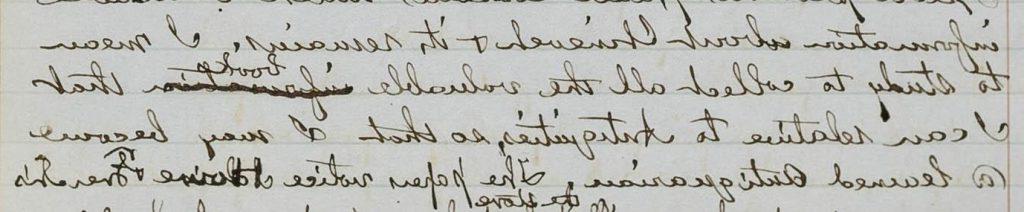 information about Nineveh & its remains, I mean
books
to study to collect all the valuable information that
I can relative to Antiquities, so that I may become
a learned Antiquarian. The paper notice French's